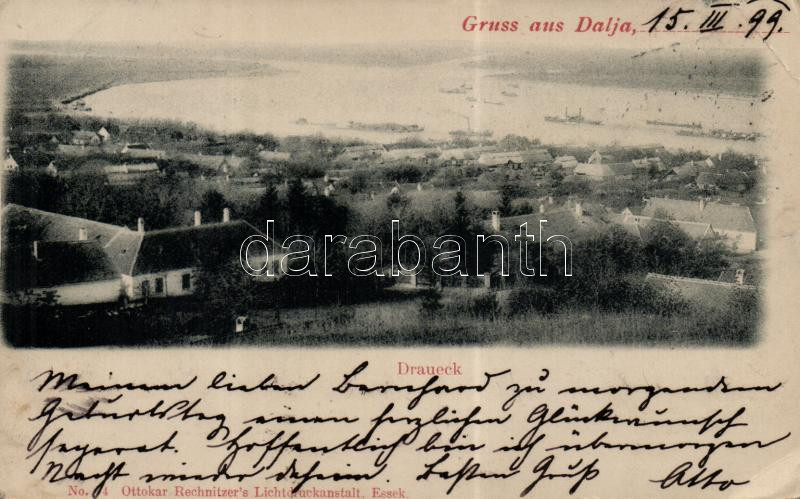 Gruss aus Dalja, 15. III. 99.
darabanth
Draueck
Meinem lieben Bernhard zu morgendem
Geburtstag einen herzlichen Glückwunsch
separat. Hoffentlich bin ich übermorgen
Nacht wieder daheim. Besten Gruß Otto
No. 74 Ottokar Rechnitzer's Lichtdruckanstalt, Essek.